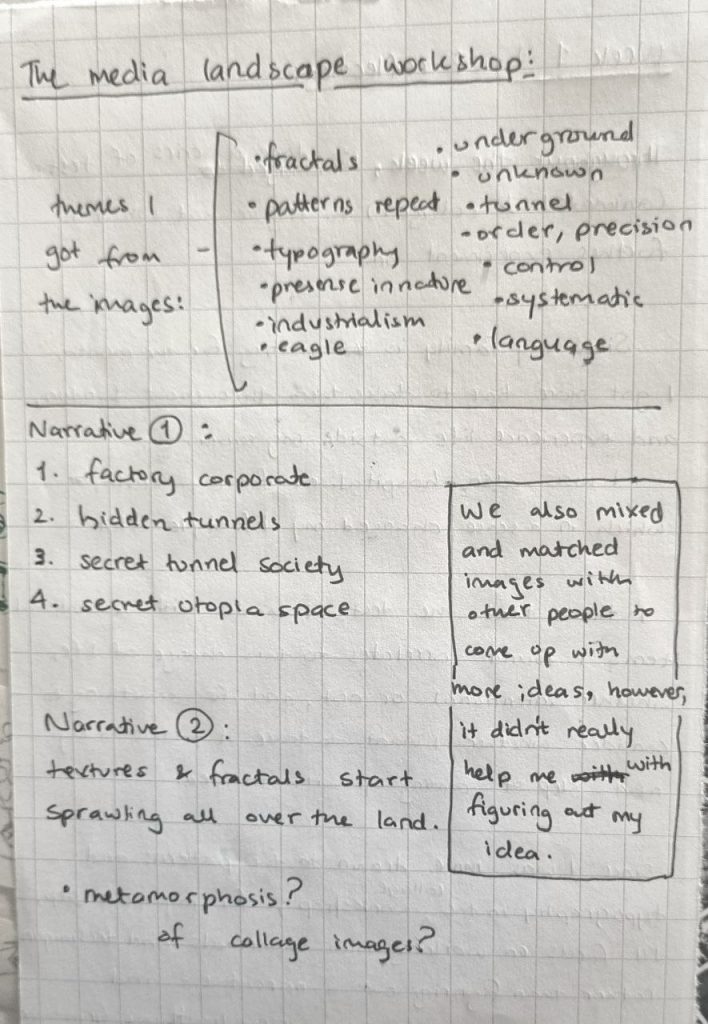 The media landscape workshop:
themes I
got from -
the images:
• fractals
• patterns repeat
• typography
• presense in nature
• industrialism
• eagle
• underground
• unknown
• tunnel
- order, precision
• control
• systematic
• language
Narrative 1 :
1. factory corporate
2. hidden tunnels
3. secret tunnel society
4. secret utopia space
We also mixed
and matched
images with
other people to
come up with
more ideas, however,
it didn't really
help me with
figuring out my
idea.
Narrative 2 :
textures & fractals start
sprawling all over the land.
• metamorphosis?
of collage images?